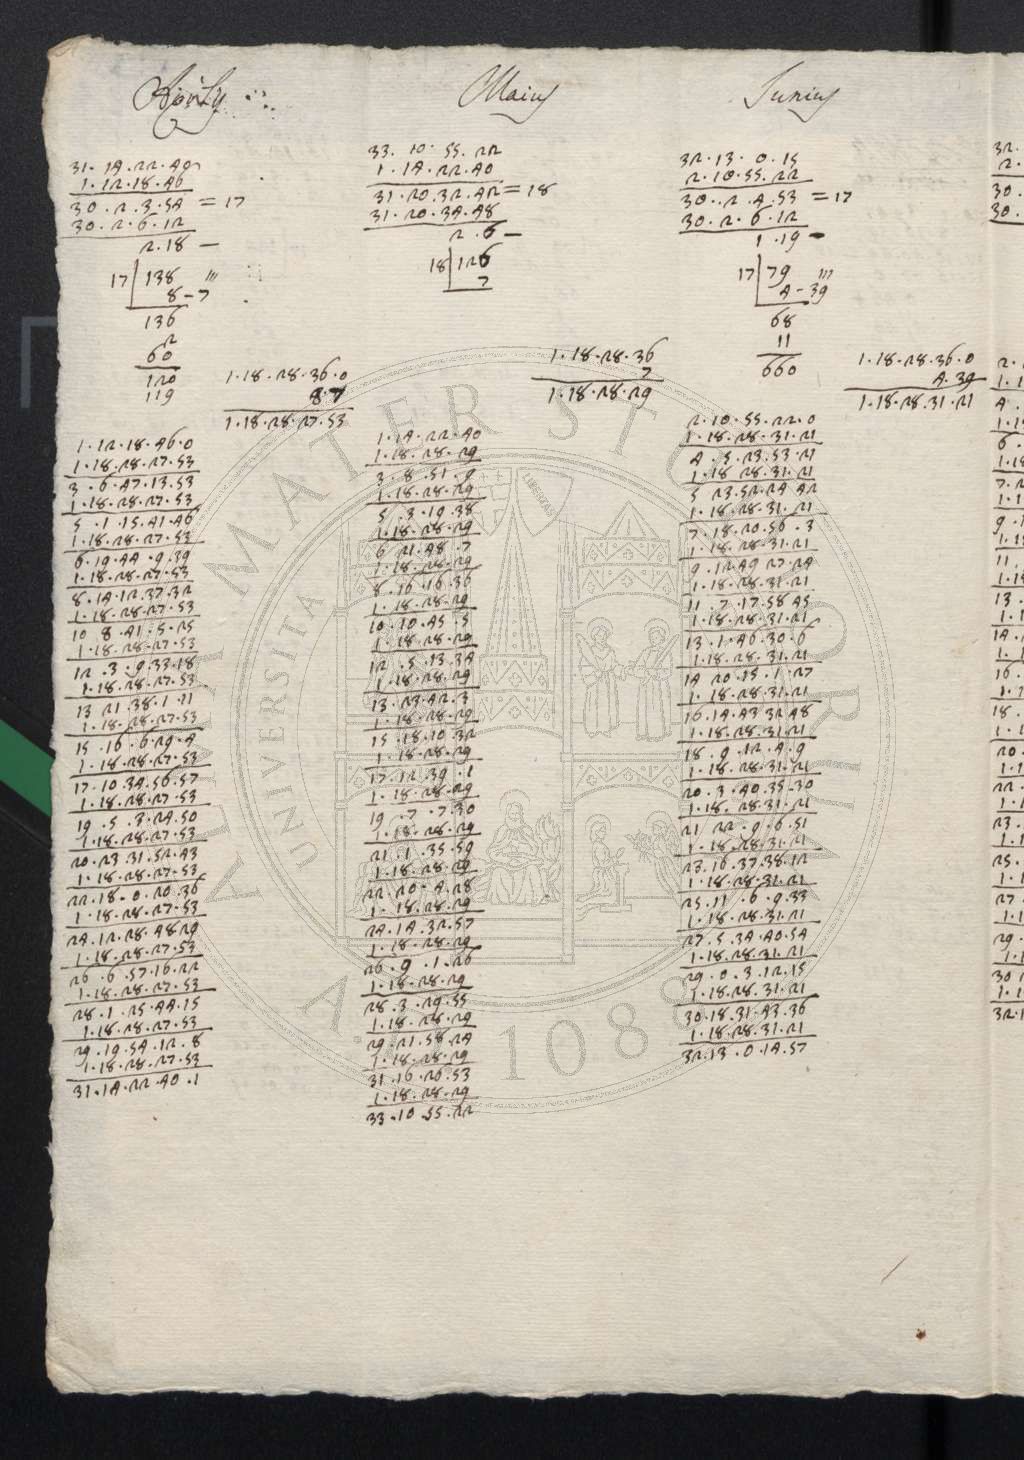 Maius
Junius
31.14.22.40
1.12.18.46
30.2.3.54 = 17
30.2.6.12
2.18 —
17 138 '''
8-7
136
2
60
120
119
1.18.28.36.0
8.7
1.18.28.27.53
1.12.18.46.0
1.18.28.27.53
3.6.47.13.53
1.18.28.27.53
5.1.15.41.46
1.18.28.27.53
6.19.44.9.39
1.18.28.27.53
8.14.12.37.32
1.18.28.27.53
10 8.41.5.25
1.18.28.27.53
12.3.9.33.18
1.18.28.27.53
13 21.38.1.11
1.18.28.27.53
15.16.6.29.4
1.18.28.27.53
17.10.34.56.57
1.18.28.27.53
19.5.3.24.50
1.18.28.27.53
20.23.31.52.43
1.18.28.27.53
22.18.0.20.36
1.18.28.27.53
24.12.28.48.29
1.18.28.27.53
26.6.57.16.22
1.18.28.27.53
28.1.25.44.15
1.18.28.27.53
29.19.54.12.8
1.18.28.27.53
31.14.22.40.1
33.10.55.22
1.14.22.40
31.20.32.42 = 18
31.20.34.48
2.6 —
18 126
7
1.18.28.36
7
1.18.28.29
1.14.22.40
1.18.28.29
3.8.51.9
1.18.28.29
5.3.19.38
1.18.28.29
6 21.48.7
1.18.28.29
8.16.16.36
1.18.28.29
10.10.45.5
1.18.28.29
12.5.13.34
1.18.28.29
13.23.42.3
1.18.28.29
15.18.10.32
1.18.28.29
17.12.39.1
1.18.28.29
19.7.7.30
1.18.28.29
21.1.35.59
1.18.28.29
22.20.4.28
1.18.28.29
24.14.32.57
1.18.28.29
26.9.1.26
1.18.28.29
28.3.29.55
1.18.28.29
29.21.58.24
1.18.28.29
31.16.26.53
1.18.28.29
33.10.55.22
32.13.0.15
2.10.55.22
30.2.4.53 = 17
30.2.6.12
1.19 —
17 79 '''
4-39
68
11
660
1.18.28.36.0
4.39
1.18.28.31.21
2.10.55.22.0
1.18.28.31.21
4.5.23.53.21
1.18 28.31.21
5 23.52.24 42
1.18.28.31.21
7.18.20.56.3
1.18.28.31.21
9.12.49 27.24
1.18.28.31.21
11.7.17.58 45
1.18.28.31.21
13.1.46.30.6
1.18.28.31.21
14 20.15.1.27
1.18.28.31.21
16.14.43 32.48
1.18.28.31.21
18.9.12.4.9
1.18.28.31.21
20.3.40.35.30
1.18.28.31.21
21 22.9.6.51
1.18.28.31.21
23.16.37.38.12
1.18.28.31.21
25.11.6.9.33
1.18.28.31.21
27.5.34.40.54
1.18.28.31.21
29.0.3.12.15
1.18.28.31.21
30.18.31.43.36
1.18.28.31.21
32.13.0.14.57
ALMA MATER STUDIORUM
UNIVERSITA
A.D. 1088